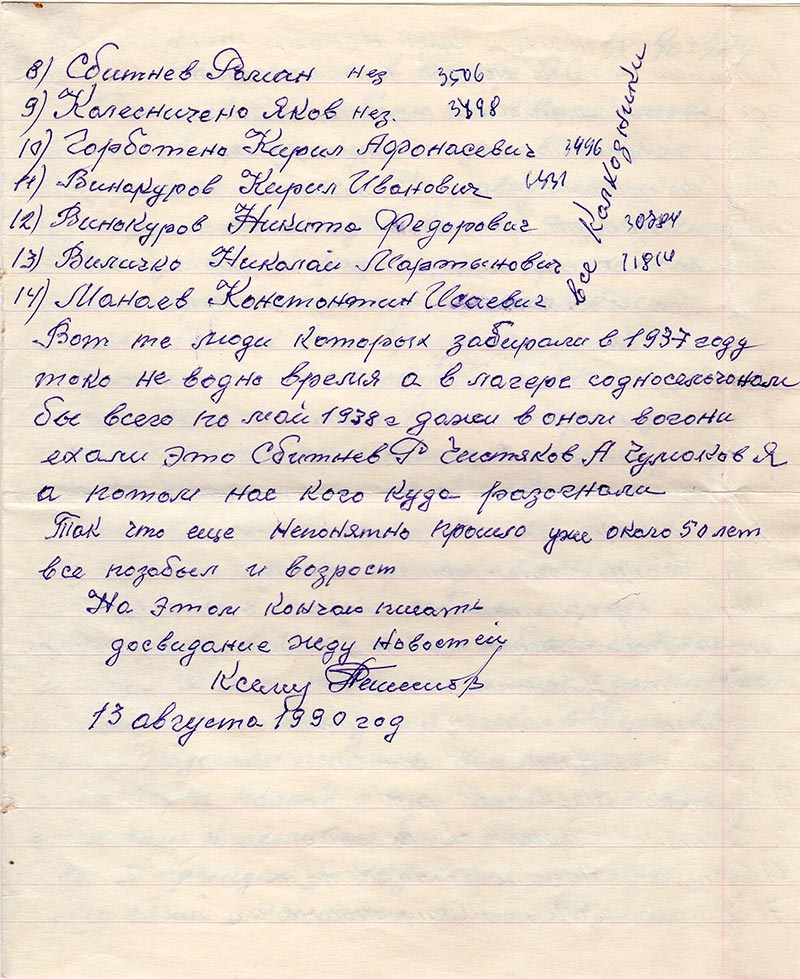 8) Сбитнев Роман нез 3506
9) Колесничено Яков нез. 3498
10) Горботено Кирил Афонасевич 3496
11) Винакуров Кирил Иванович
12) Винокуров Никита Федорович 30784
13) Виличко Николай Мартынович 11814
14) Манаев Констонтин Исаевич
все Колхозники
Вот те люди которых забирали в 1937 году
токо не водно время а в лагере
бы всего по май 1938 г дажи в оном вогони
ехали это Сбитнев Р Чистяков А Чумоков Я
а потом нас кого куда розогнали
Так что еще непонятно прошло уже около 50 лет
все позабыл и возрост
На этом кончаю писать
досвидание жду новостей
Ксему
13 августа 1990 год